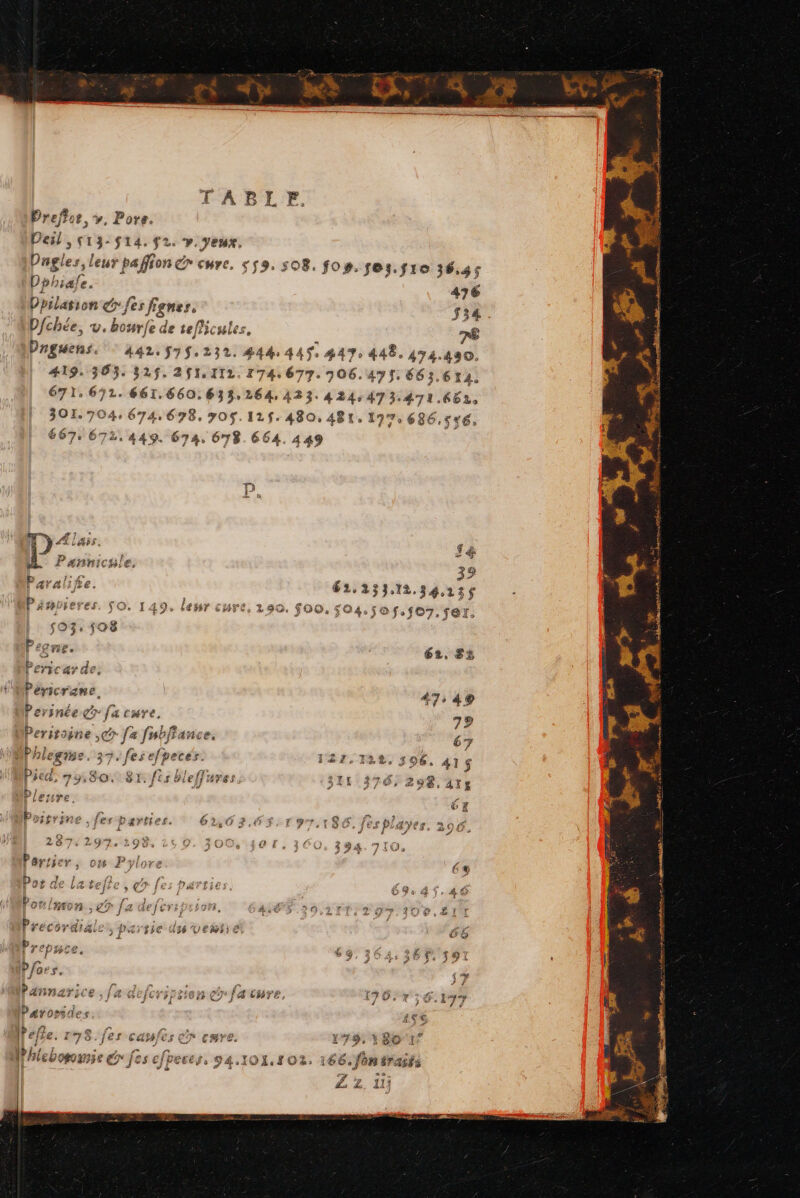 TABLE.
Oreſlot, v. Pore.
Oeil, 513-514. 52. v. yeux.
Ongles, leur paſſion & cure. 559. 508. 509. 503. 510 36.45
Ophiaſe. 476
Opilation & ſes ſignes. 534
Oſchée, v. bourſe de teſticules. 78
Onguens. 442. 575. 232. 444. 445. 447. 448. 474. 430.
419. 363. 325. 251. 112. 174. 677. 706. 475. 663. 614.
671. 672. 661. 660. 633. 264. 423. 424. 473. 471. 662.
301. 704. 674. 678. 705. 125. 480. 481. 177. 686. 556.
667. 672. 449. 674. 678. 664. 449
P.
PAlais. 54
Pannicule. 39
Paraliſie. 62. 233. 12. 34. 235
Paupieres. 50. 149. leur cure, 290. 500. 504. 505. 507. 501.
503. 508
Pegne. 62. 82
Pericarde,
Péricrane, 47. 49
Perinée & ſa cure. 79
Peritoine, & ſa ſubſtance. 67
Phlegme. 37. ſes eſpeces. 121. 122. 396. 415
Pied, 79. 80. 81. ſes bleſſures. 311 376. 298. 415
Pleure. 61
Poitrine, ſes parties. 62. 63. 65. 197. 186. ſes playes. 296.
287. 297. 298. 259. 300. 301. 360. 394. 710.
Portier, ou Pylore. 69
Pot de la teſte, & ſes parties. 69. 45. 46
Poulmon, & ſa deſcription. 64. 65. 39. 211. 297. 300. 811
Precordiale, partie du ventre. 66
Prepuce. 69. 364. 365. 591
Pſoes. 57
Pannarice, ſa deſcription & ſa cure. 170. 136. 177
Parotides. 155
Peſte. 178. ſes cauſes & cure. 179. 180 1
Phlebotomie & ſes eſpeces. 94. 101. 102. 166. ſon traité
Zz iij